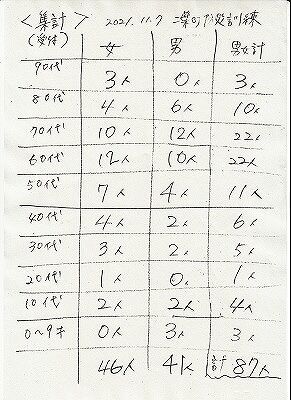 ＜集計＞ 2021.11.7 二葉町防災訓練
(受付) 女 男 男女計
90代 3人 0人 3人
80代 4人 6人 10人
70代 10人 12人 22人
60代 12人 10人 22人
50代 7人 4人 11人
40代 4人 2人 6人
30代 3人 2人 5人
20代 1人 0人 1人
10代 2人 2人 4人
0〜9才 0人 3人 3人
46人 41人 計 87人